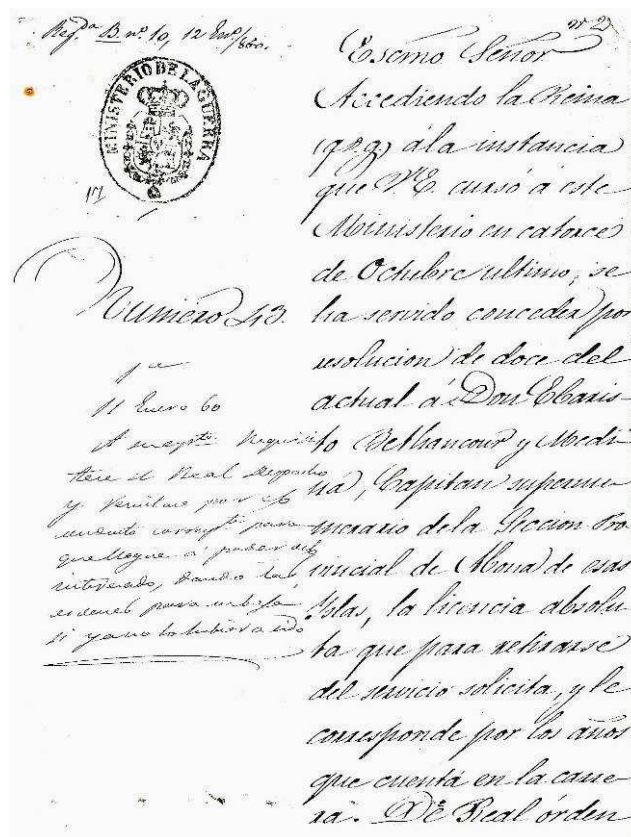 Regda B. nº 10, 12 Enº/860.
nº 2
MINISTERIO DE LA GUERRA
Numero 43.
11 Enero 60
el Real Despacho
y
para
que llegue á poder del
interesado, dando las
ordenes para
si ya no lo hubiera sido
Escmo. Señor
Accediendo la Reina
(q.D.g) á la instancia
que V.E. cursó á este
Ministerio en catorce
de Octubre ultimo, se
ha servido conceder por
resolucion de doce del
actual á Don Ebaris-
to Bethancour y Medi-
na, Capitan supernu-
merario de la Seccion Pro-
vincial de Mona de esas
Yslas, la licencia absolu-
ta que para retirarse
del servicio solicita, y le
corresponde por los años
que cuenta en la carre-
ra. De Real órden